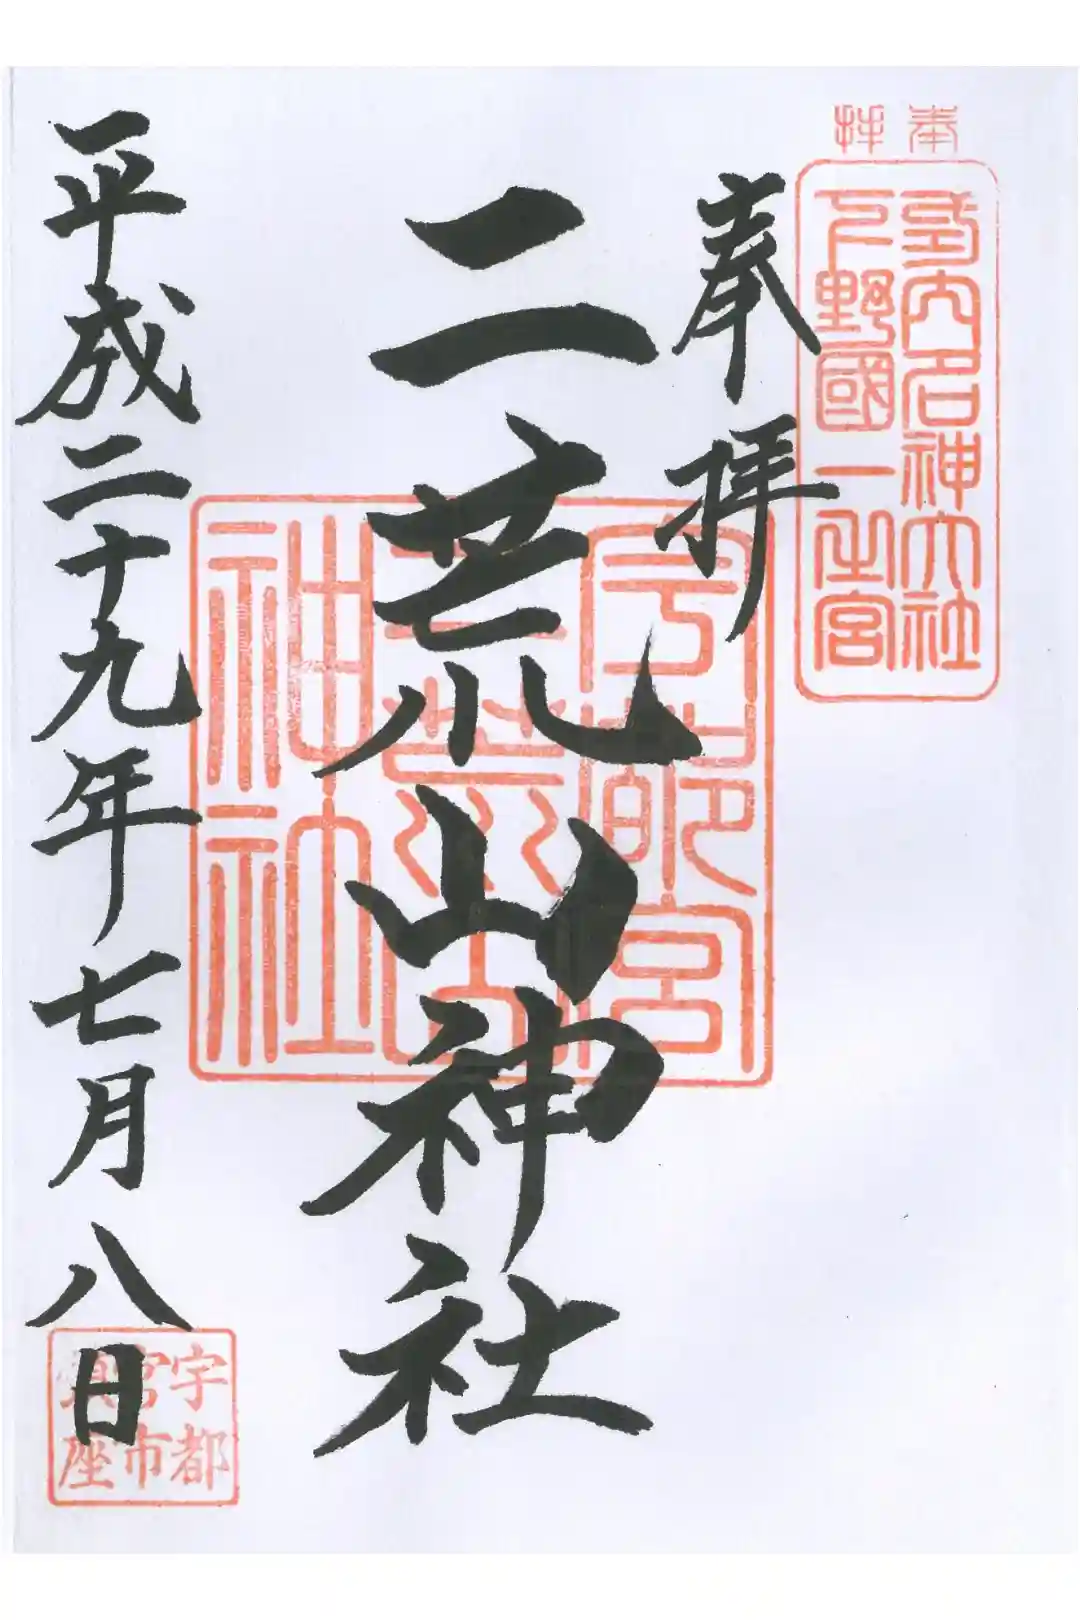 奉拝
式内名神大社
下野國一之宮
奉拝
宇都宮
二荒山
神社
二荒山神社
平成二十九年七月八日
宇都
宮市
鎮座